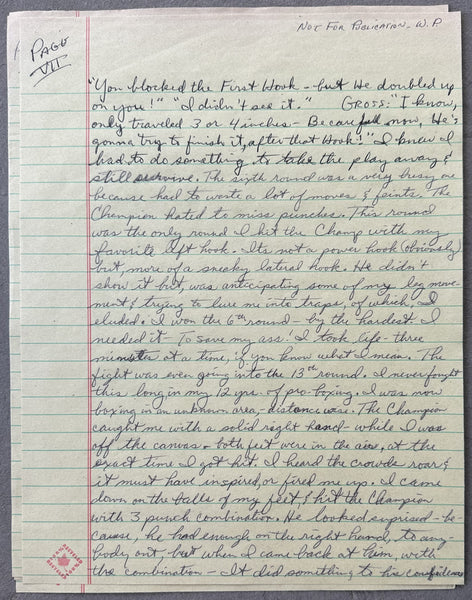 NOT FOR PUBLICATION - W.P.
PAGE
VII
"You blocked the First Hook - but He doubled up
on you!" "I didn't see it." GROSS: "I know,
only traveled 3 or 4 inches - Be careful now, He's
gonna try to finish it, after that Hook!" I knew I
had to do something to take the play away &
still survive. The sixth round was a very busy one
because had to waste a lot of moves & feints. The
Champion hated to miss punches. This round
was the only round I hit the Champ with my
favorite left hook. Its not a power hook (obviously)
but, more of a sneaky lateral hook. He didn't
show it but, was anticipating some of my leg move-
ment & trying to lure me into traps, of which, I
eluded. I won the 6th round - by the hardest. I
needed it - To save my ass! I took life - three
minutes at a time, if you know what I mean. The
fight was even going into the 13th round. I never fought
this long in my 12 yrs. of pro-boxing. I was now
boxing in an unknown area, - distance wise. The Champion
caught me with a solid right hand - while I was
off the canvas - both feet were in the air, at the
exact time I got hit. I heard the crowds roar &
it must have inspired, or fired me up. I came
down on the balls of my feet, & hit the Champion
with 3 punch combination. He looked suprised - be-
cause, he had enough on the right hand, to any-
body out, but when I came back at him, with
the combination - It did something to his confidence